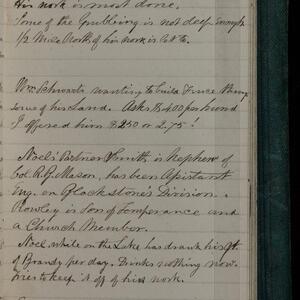 His work is most done.
Some of the Grubbing is not deep enough
1/2 Mile North of his work is Cut to.
Wm Schwartz wanting to build Fence thru
some of his Land. Asks $4.00 per hund
I offered him $2.50 or 2.75!
Noel's Partner Smith is Nephew of
Col R.G. Mason, has been Assistant
Eng. on Blackstone's Division
Rowley is Son of Temperance and
a Church Member.
Noel while on the Lake has drank his Qt
of Brandy per day. Drinks nothing now
tries to keep it off of his work.